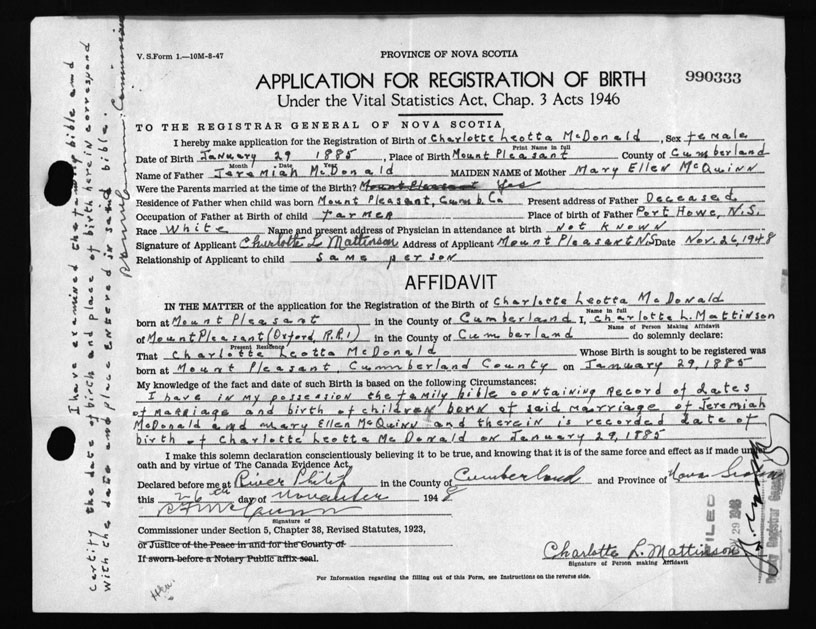 V. S. Form 1.—10M-8-47
PROVINCE OF NOVA SCOTIA
990333
APPLICATION FOR REGISTRATION OF BIRTH
Under the Vital Statistics Act, Chap. 3 Acts 1946
TO THE REGISTRAR GENERAL OF NOVA SCOTIA
I hereby make application for the Registration of Birth of Charlotte Leotta McDonald, Sex female
Print Name in full
Date of Birth January 29 1885, Place of Birth Mount Pleasant County of Cumberland
Month Date Year
Name of Father Jeremiah McDonald MAIDEN NAME of Mother Mary Ellen McQuinn
Were the Parents married at the time of the Birth? Mount Pleasant Yes
Residence of Father when child was born Mount Pleasant, Cumb. Co Present address of Father Deceased
Occupation of Father at Birth of child farmer Place of birth of Father Port Howe, N.S.
Race White Name and present address of Physician in attendance at birth not known
Signature of Applicant Charlotte L Mattinson Address of Applicant Mount Pleasant N.S Date Nov. 26, 1948
Relationship of Applicant to child same person
AFFIDAVIT
IN THE MATTER of the application for the Registration of the Birth of Charlotte Leotta McDonald
Name in full
born at Mount Pleasant in the County of Cumberland I, Charlotte L. Mattinson
Name of Person Making Affidavit
of Mount Pleasant (Oxford, R.R.1) in the County of Cumberland do solemnly declare:
Present Residence
That Charlotte Leotta McDonald Whose Birth is sought to be registered was
born at Mount Pleasant, Cummberland County on January 29, 1885
My knowledge of the fact and date of such Birth is based on the following Circumstances:
I have in my possession the family bible containing record of dates
of marriage and birth of children born of said marriage of Jeremiah
McDonald and Mary Ellen McQuinn and therein is recorded date of
birth of Charlotte Leotta McDonald on January 29, 1885
I make this solemn declaration conscientiously believing it to be true, and knowing that it is of the same force and effect as if made under
oath and by virtue of The Canada Evidence Act,
Declared before me at River Philip in the County of Cumberland and Province of Nova Scotia
this 26th day of November 1948
Signature of
Commissioner under Section 5, Chapter 38, Revised Statutes, 1923,
or Justice of the Peace in and for the County of
If sworn before a Notary Public affix seal.
Charlotte L. Mattinson
Signature of Person making Affidavit
For Information regarding the filling out of this Form, see Instructions on the reverse side.
I have examined the family bible and
certify the date of birth and place of birth herein correspond
with the date and place entered in said bible.
FILED
NOV 29 1948
Deputy Registrar General